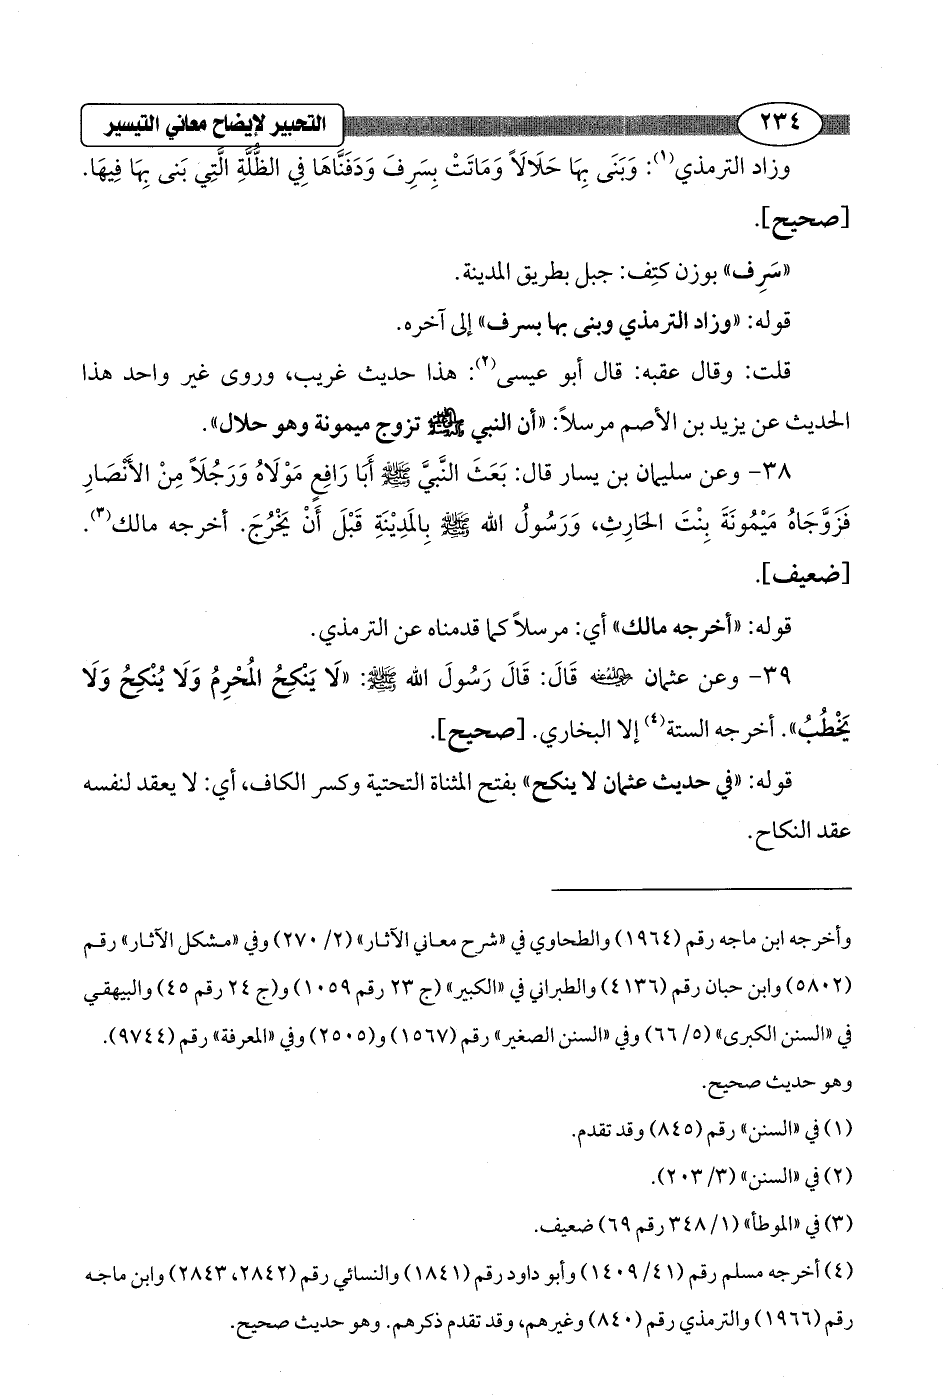 ٢٣٤ التحبير لإيضاح معاني التيسير
وزاد الترمذي(١): وَبَنَى بِهَا حَلَالاً وَمَاتَتْ بِسَرِفَ وَدَفَنَّاهَا فِي الظُّلَّةِ الَّتِي بَنى بِهَا فِيهَا.
[صحيح].
«سَرِف» بوزن كتِف: جبل بطريق المدينة.
قوله: «وزاد الترمذي وبنى بها بسرف» إلى آخره.
قلت: وقال عقبه: قال أبو عيسى(٢): هذا حديث غريب، وروى غير واحد هذا
الحديث عن يزيد بن الأصم مرسلاً: «أن النبي ﷺ تزوج ميمونة وهو حلال».
٣٨- وعن سليمان بن يسار قال: بَعَثَ النَّبيَّ ﷺ أَبَا رَافِعٍ مَوْلَاهُ وَرَجُلَاً مِنْ الأَنْصَارِ
فَزَوَّجَاهُ مَيْمُونَةَ بِنْتَ الحَارِثِ، وَرَسُولُ الله ﷺ بِالمَدِينَةِ قَبْلَ أَنْ يَخْرُجَ. أخرجه مالك(٣).
[ضعيف].
قوله: «أخرجه مالك» أي: مرسلاً كما قدمناه عن الترمذي.
٣٩- وعن عثمان رضي الله عنه قَالَ: قَالَ رَسُولَ الله ﷺ: «لَا يَنْكِحُ المُحْرِمُ وَلَا يُنْكِحُ وَلَا
يَخْطُبُ». أخرجه الستة(٤) إلا البخاري. [صحيح].
قوله: «في حديث عثمان لا ينكح» بفتح المثناة التحتية وكسر الكاف، أي: لا يعقد لنفسه
عقد النكاح.
وأخرجه ابن ماجه رقم (١٩٦٤) والطحاوي في «شرح معاني الآثار» (٢/ ٢٧٠) وفي «مشكل الآثار» رقم
(٥٨٠٢) وابن حبان رقم (٤١٣٦) والطبراني في «الكبير» (ج ٢٣ رقم ١٠٥٩) و(ج ٢٤ رقم ٤٥) والبيهقي
في «السنن الكبرى» (٥/ ٦٦) وفي «السنن الصغير» رقم (١٥٦٧) و(٢٥٠٥) وفي «المعرفة» رقم (٩٧٤٤).
وهو حديث صحيح.
(١) في «السنن» رقم (٨٤٥) وقد تقدم.
(٢) في «السنن» (٣/ ٢٠٣).
(٣) في «الموطأ» (١/ ٣٤٨ رقم ٦٩) ضعيف.
(٤) أخرجه مسلم رقم (٤١/ ١٤٠٩) وأبو داود رقم (١٨٤١) والنسائي رقم (٢٨٤٢، ٢٨٤٣) وابن ماجه
رقم (١٩٦٦) والترمذي رقم (٨٤٠) وغيرهم، وقد تقدم ذكرهم. وهو حديث صحيح.